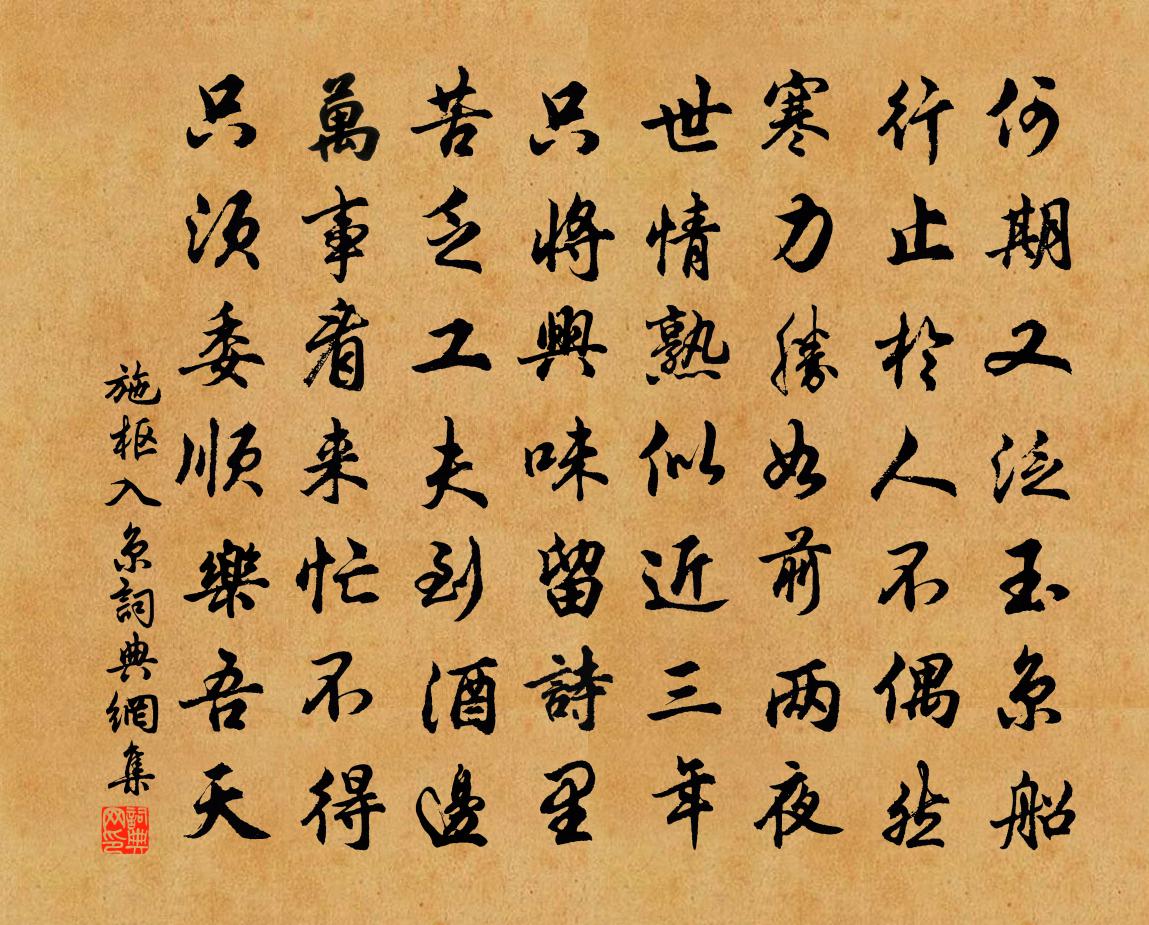 何期又泛玉京船
行止於人不偶然
寒力勝如前两夜
世情熟似近三年
只將興味留詩里
苦乏工夫到酒邊
萬事看来忙不得
只須委順樂吾天
施枢入京詞典網集
詞典网印